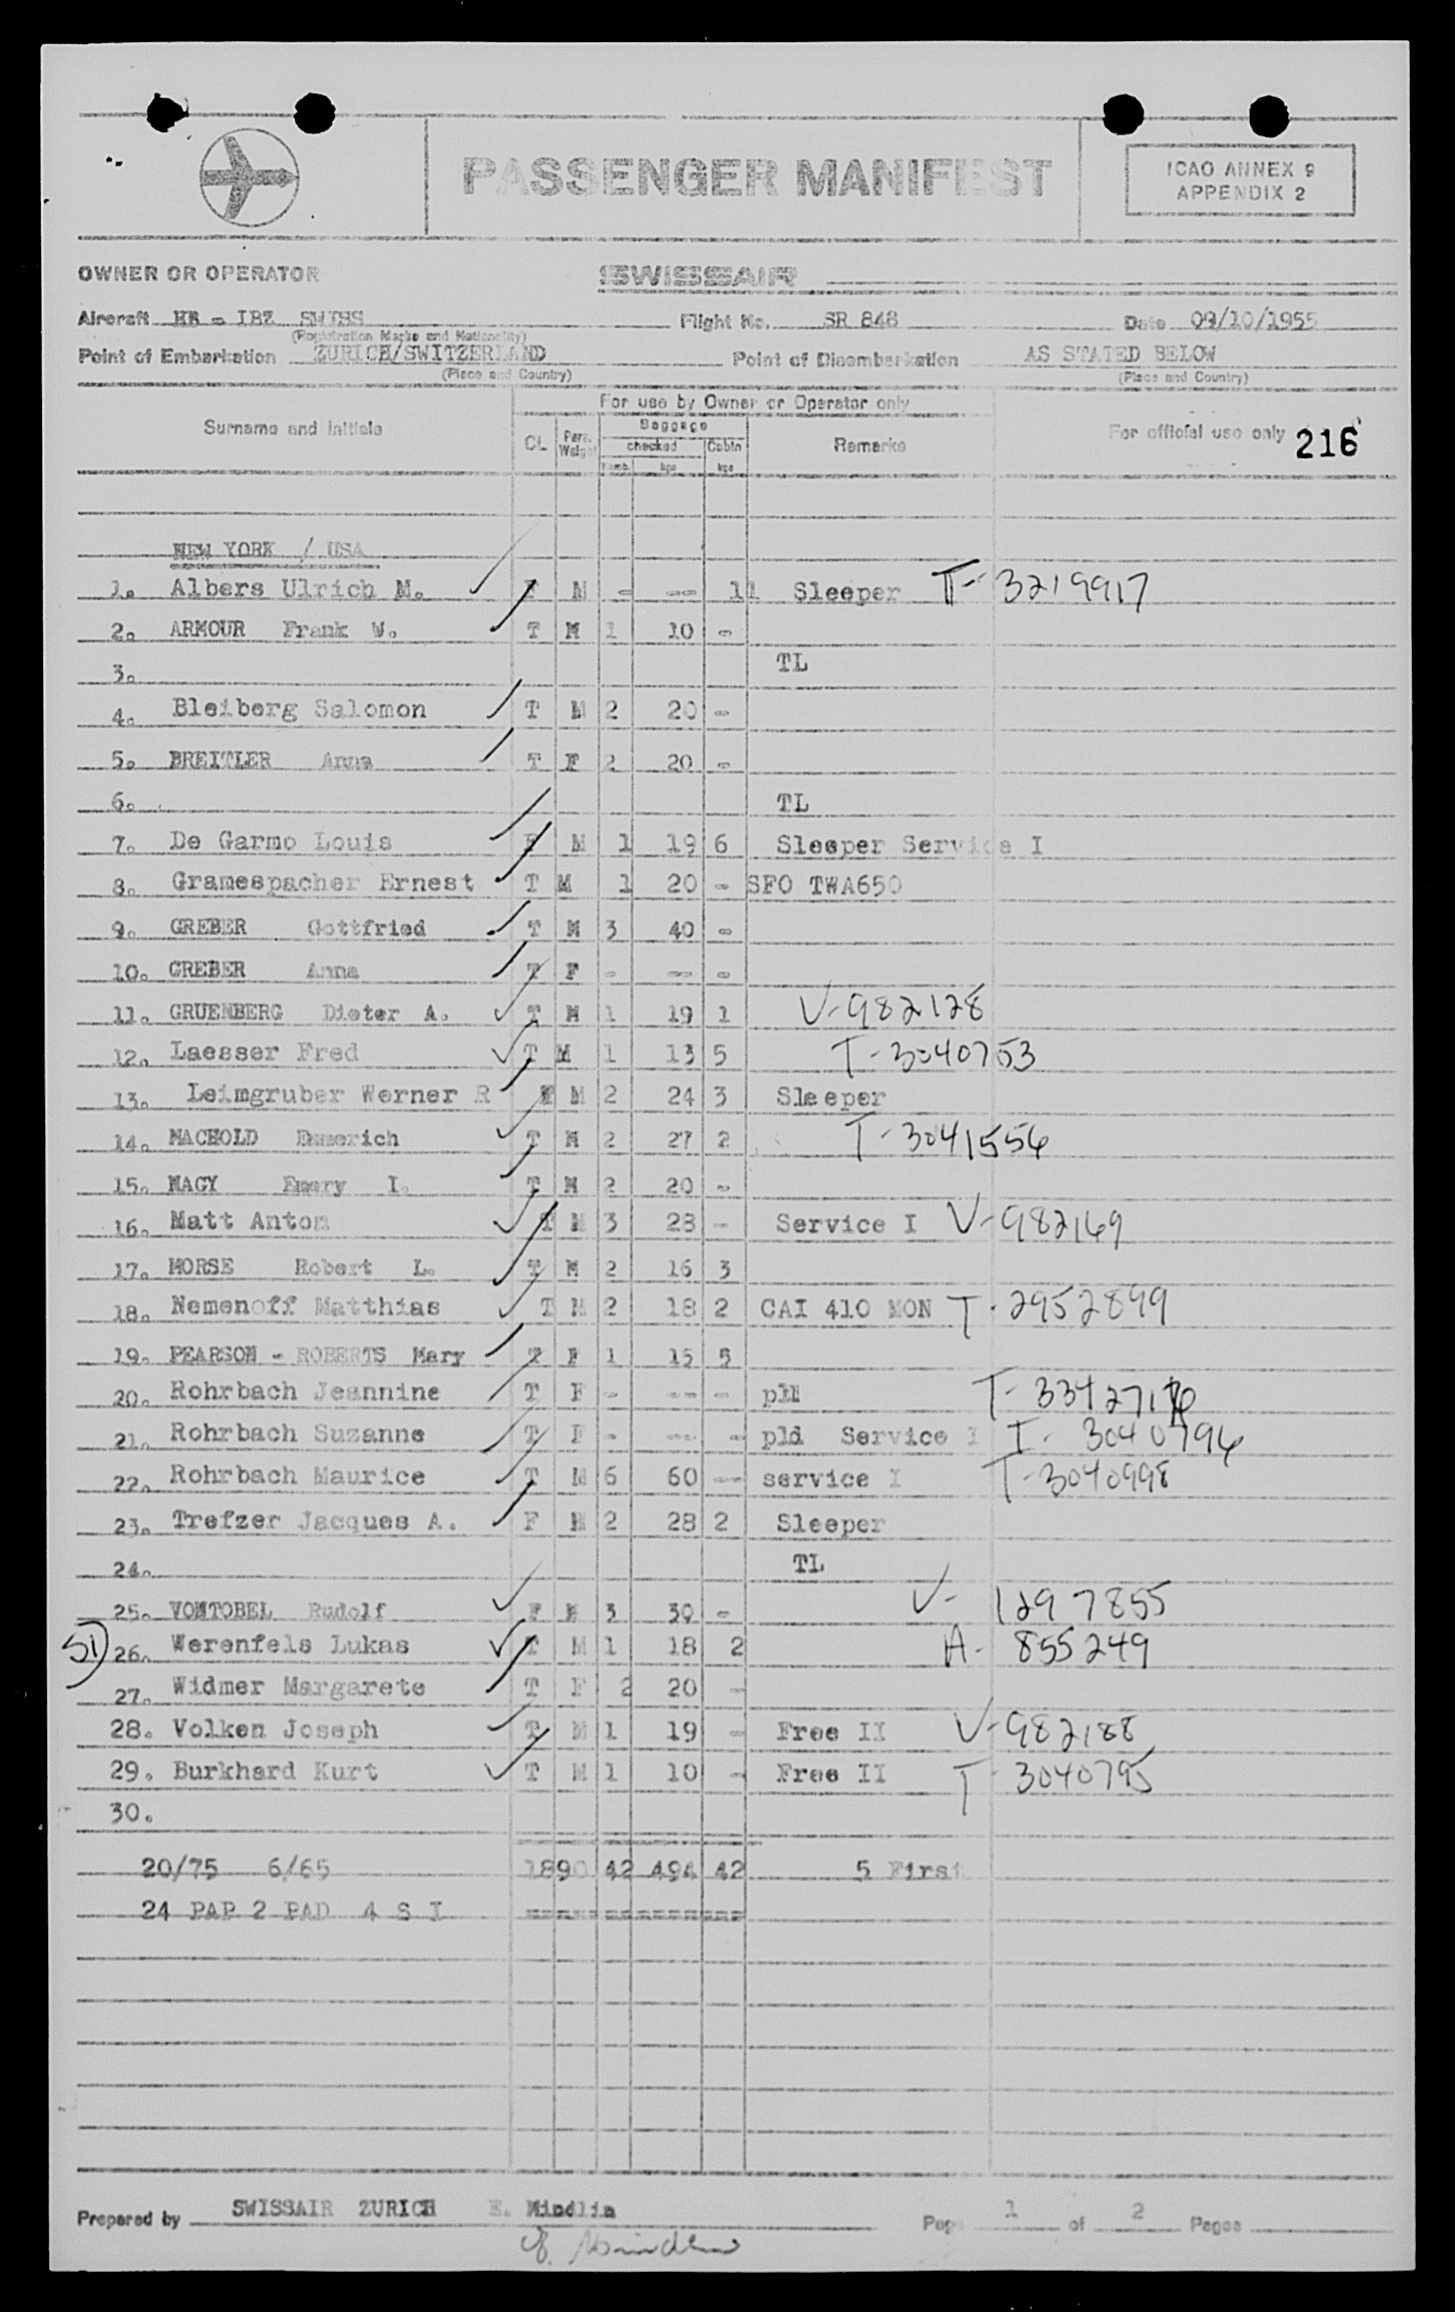 PASSENGER MANIFEST
ICAO ANNEX 9
APPENDIX 2
OWNER OR OPERATOR SWISSAIR
Aircraft HB - IBZ SWISS Flight No. SR 848 Date 09/10/1955
(Registration Marks and Nationality)
Point of Embarkation ZURICH/SWITZERLAND Point of Disembarkation AS STATED BELOW
(Place and Country) (Place and Country)
For use by Owner or Operator only
Surname and initials CL Pers. Weight Baggage checked Cabin Remarks For official use only 216
Numb. kgs kgs
NEW YORK / USA
1. Albers Ulrich M. F M - -- 11 Sleeper T-3219917
2. ARMOUR Frank W. T M 1 10 -
3. TL
4. Bleiberg Salomon T M 2 20 -
5. BREITLER Anna T F 2 20 -
6. TL
7. De Garmo Louis F M 1 19 6 Sleeper Service I
8. Gramespacher Ernest T M 1 20 - SFO TWA650
9. GREBER Gottfried T M 3 40 -
10. GREBER Anna T F - -- -
11. GRUENBERG Dieter A. T M 1 19 1 V-982128
12. Laesser Fred T M 1 13 5 T-3040753
13. Leimgruber Werner R M 2 24 3 Sleeper
14. MACHOLD Emmerich T M 2 27 2 T-3041556
15. NAGY Emery I. T M 2 20 -
16. Matt Anton T M 3 28 - Service I V-982169
17. MORSE Robert L. T M 2 16 3
18. Nemenoff Matthias T M 2 18 2 CAI 410 MON T-2952899
19. PEARSON - ROBERTS Mary T F 1 15 5
20. Rohrbach Jeannine T F - -- -
21. Rohrbach Suzanne T F - -- - pld Service I T-3040796
22. Rohrbach Maurice T M 6 60 -- service I T-3040998
23. Trefzer Jacques A. F M 2 28 2 Sleeper
24. TL
25. VONTOBEL Rudolf F M 3 30 - V-1297855
51) 26. Werenfels Lukas T M 1 18 2 A-855249
27. Widmer Margarete T F 2 20 -
28. Volken Joseph T M 1 19 - Free II V-982188
29. Burkhard Kurt T M 1 10 - Free II T-3040795
30.
20/75 6/65 1890 42 494 42 5 First
24 PAP 2 PAD 4 S I
Prepared by SWISSAIR ZURICH E. Mindlin Page 1 of 2 Pages